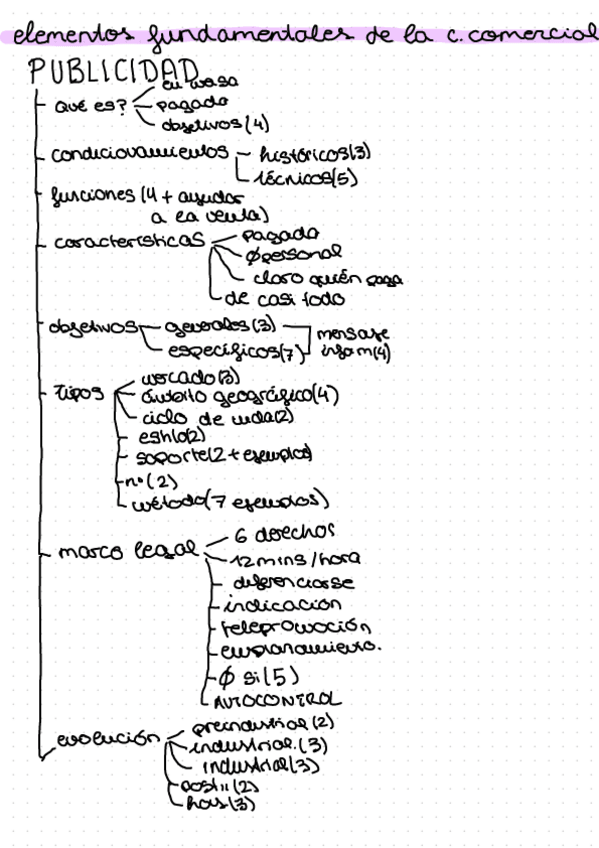 elementos fundamentales de la c. comercial
PUBLICIDAD
Qué es?
en masa
pagada
objetivos (4)
condicionamientos
históricos (3)
técnicos (5)
funciones (4 + ayudar
a la venta)
características
pagada
∅ personal
claro quién paga
de casi todo
objetivos
generales (3)
específicos (7)
mensaje
inform (4)
tipos
mercado (3)
ámbito geográfico (4)
ciclo de vida (2)
estilo (2)
soporte (2 + ejemplos)
nº (2)
método (7 ejemplos)
marco legal
6 derechos
12 mins/hora
diferenciarse
indicación
telepromoción
emplazamiento.
∅ si (5)
AUTOCONTROL
evolución
preindustrial (2)
industrial. (3)
industrial (3)
post 11 (2)
hoy (3)